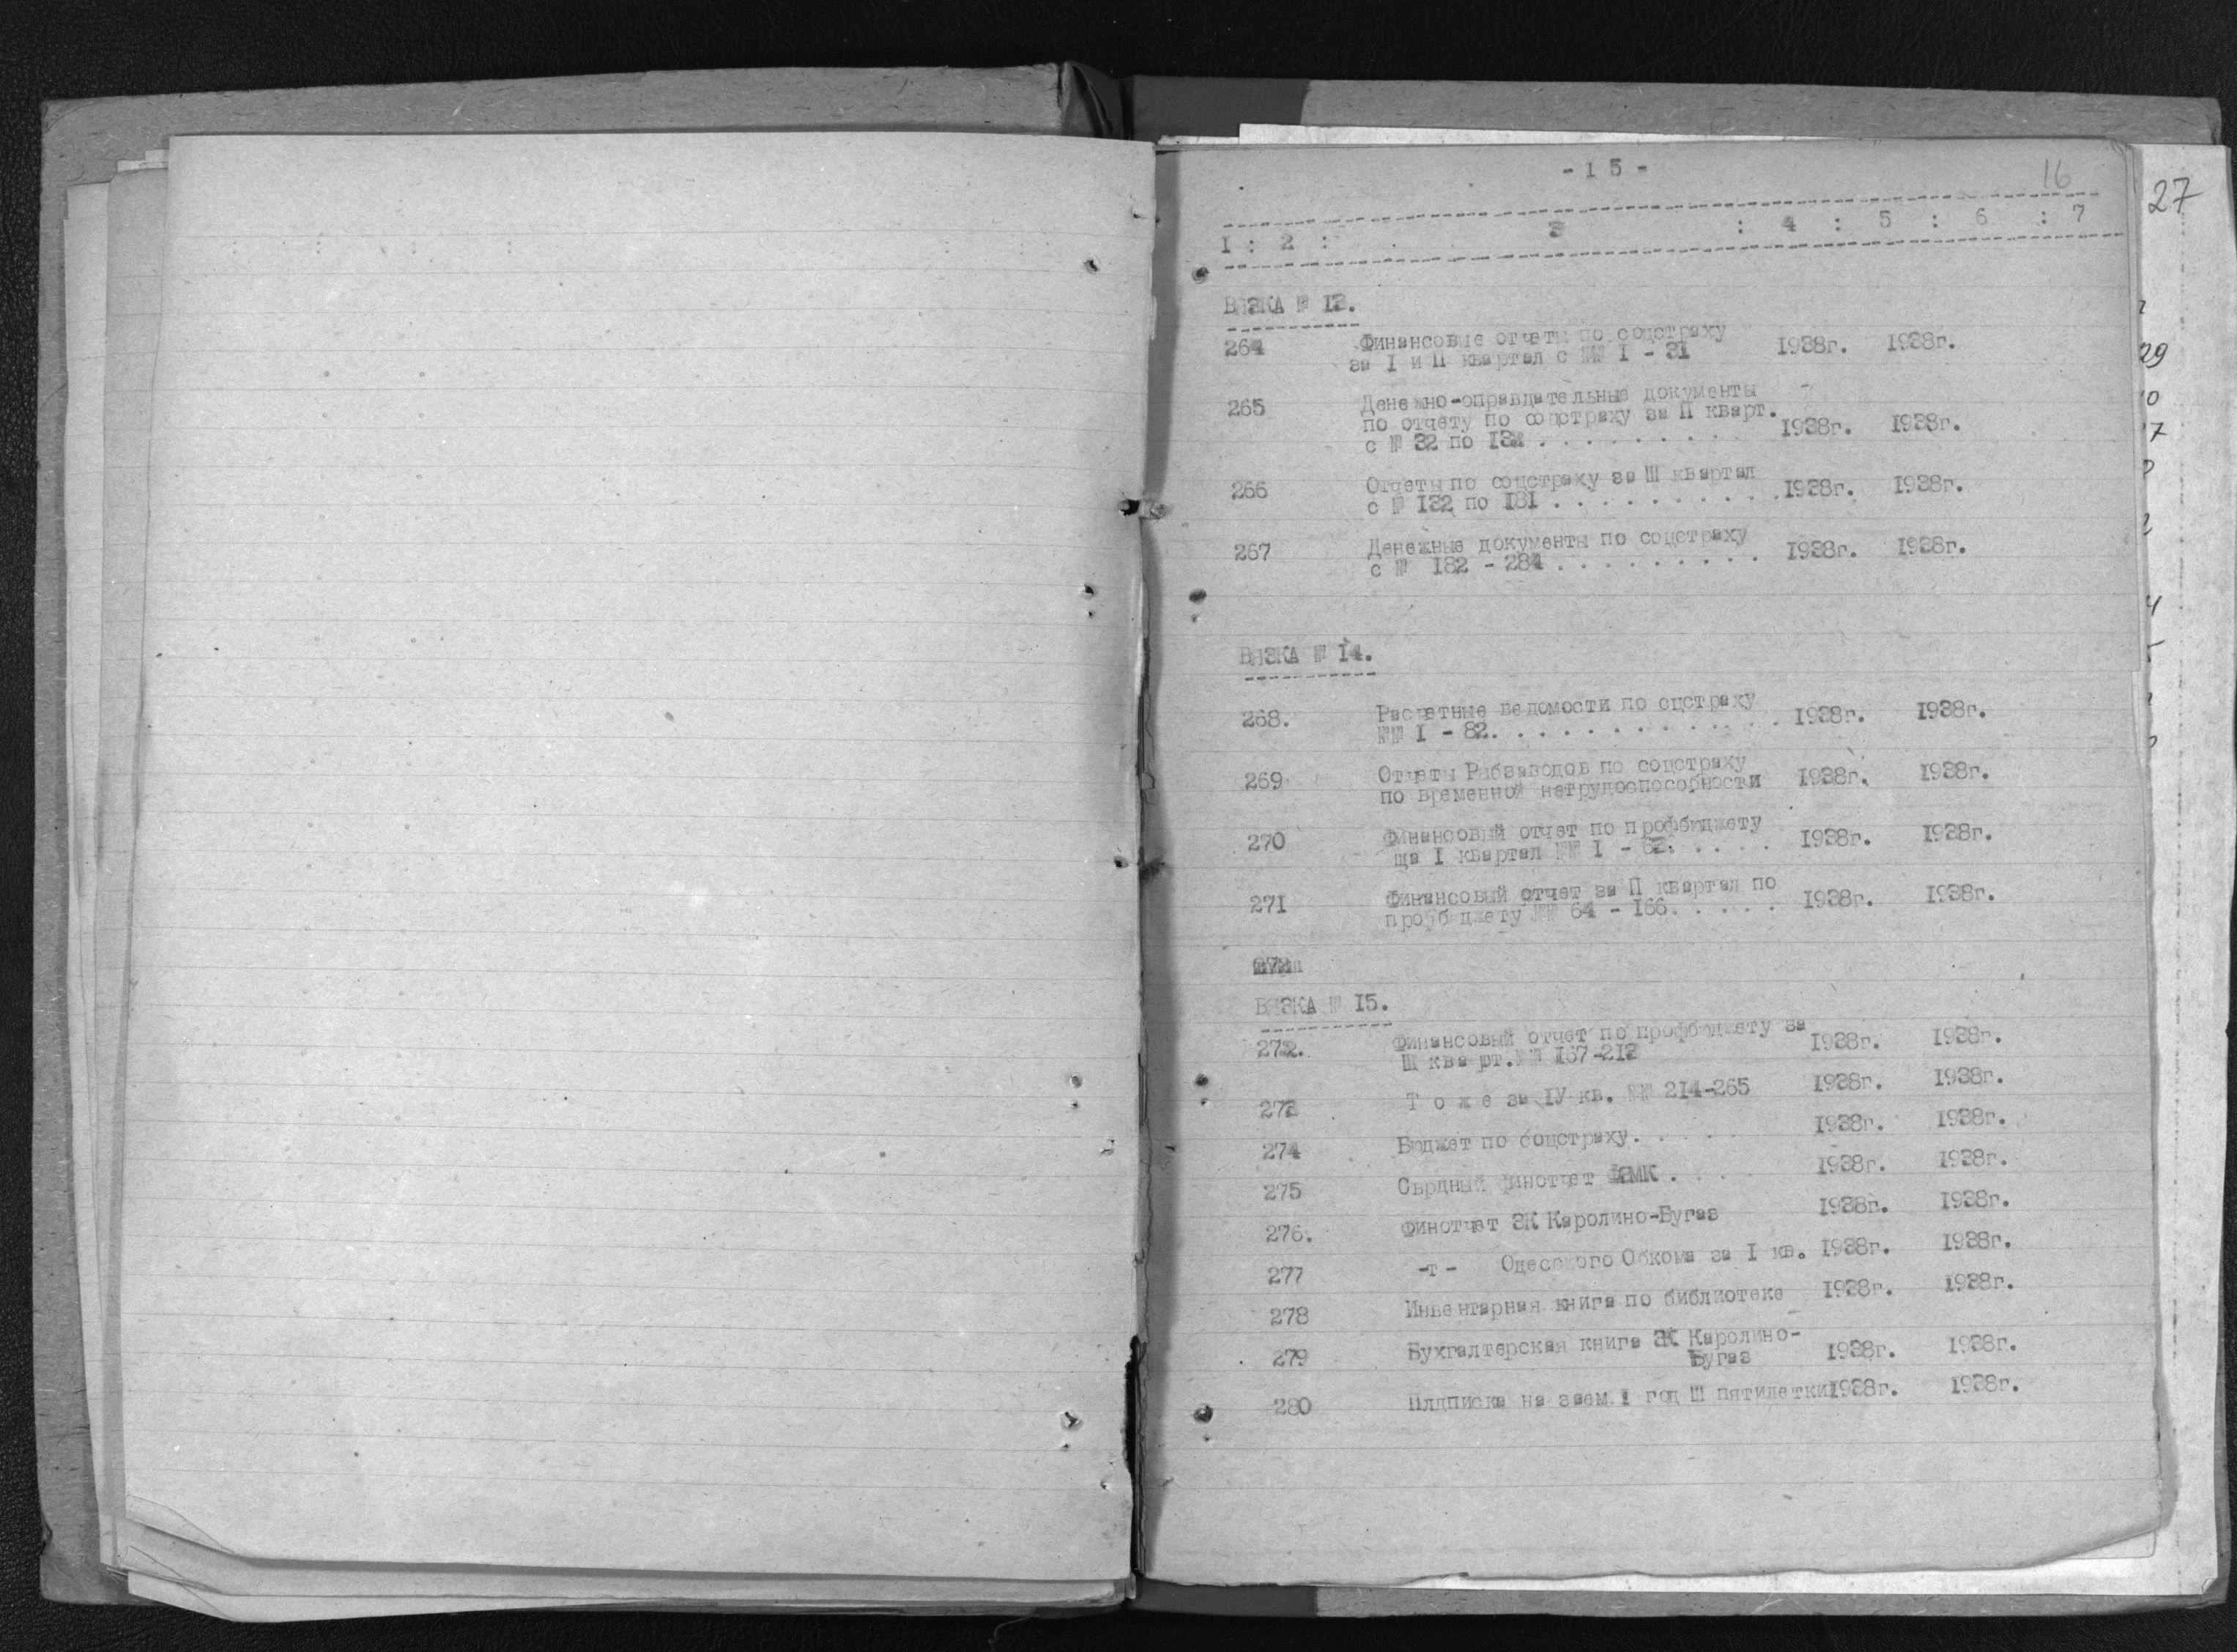 - I 5 -
16
27
I : 2 : 3 : 4 : 5 : 6 : 7
ВЯЗКА № 13.
264 Финансовые отчеты по соцстраху
за I и II квартал с №№ I - 31 1938г. 1938г.
265 Денежно-оправдательные документы
по отчету по соцстраху за II кварт.
с № 32 по 132 . . . . . . . . . 1938г. 1938г.
266 Отчеты по соцстраху за Ш квартал
с № 132 по 181 . . . . . . . . . . 1938г. 1938г.
267 Денежные документы по соцстраху
с № 182 - 284 . . . . . . . . . 1938г. 1938г.
ВЯЗКА № 14.
268. Расчетные ведомости по сцстраху
№№ I - 82. . . . . . . . . . . . 1938г. 1938г.
269 Отчеты Рыбзаводов по соцстраху
по временной нетрудоспособности 1938г. 1938г.
270 Финансовый отчет по профбюджету
ща I квартал №№ I - 63. . . . . 1938г. 1938г.
271 Финансовый отчет за П квартал по
профбюджету №№ 64 - 166. . . . . 1938г. 1938г.
ВЯЗКА № 15.
272. Финансовый отчет по профбюджету за
Ш кварт.№№ 167-213 1938г. 1938г.
273 Т о ж е за IУ кв. №№ 214-265 1938г. 1938г.
274 Бюджет по соцстраху. . . . . 1938г. 1938г.
275 Сврдный финотчет . . . . 1938г. 1938г.
276. Финотчет ЗК Каролино-Бугаз 1938г. 1938г.
277 -т- Одесского Обкома за I кв. 1938г. 1938г.
278 Инвентарная книга по библиотеке 1938г. 1938г.
279 Бухгалтерская книга ЗК Каролино-
Бугаз 1938г. 1938г.
280 Плдписка на заем I год Ш пятилетки1938г. 1938г.